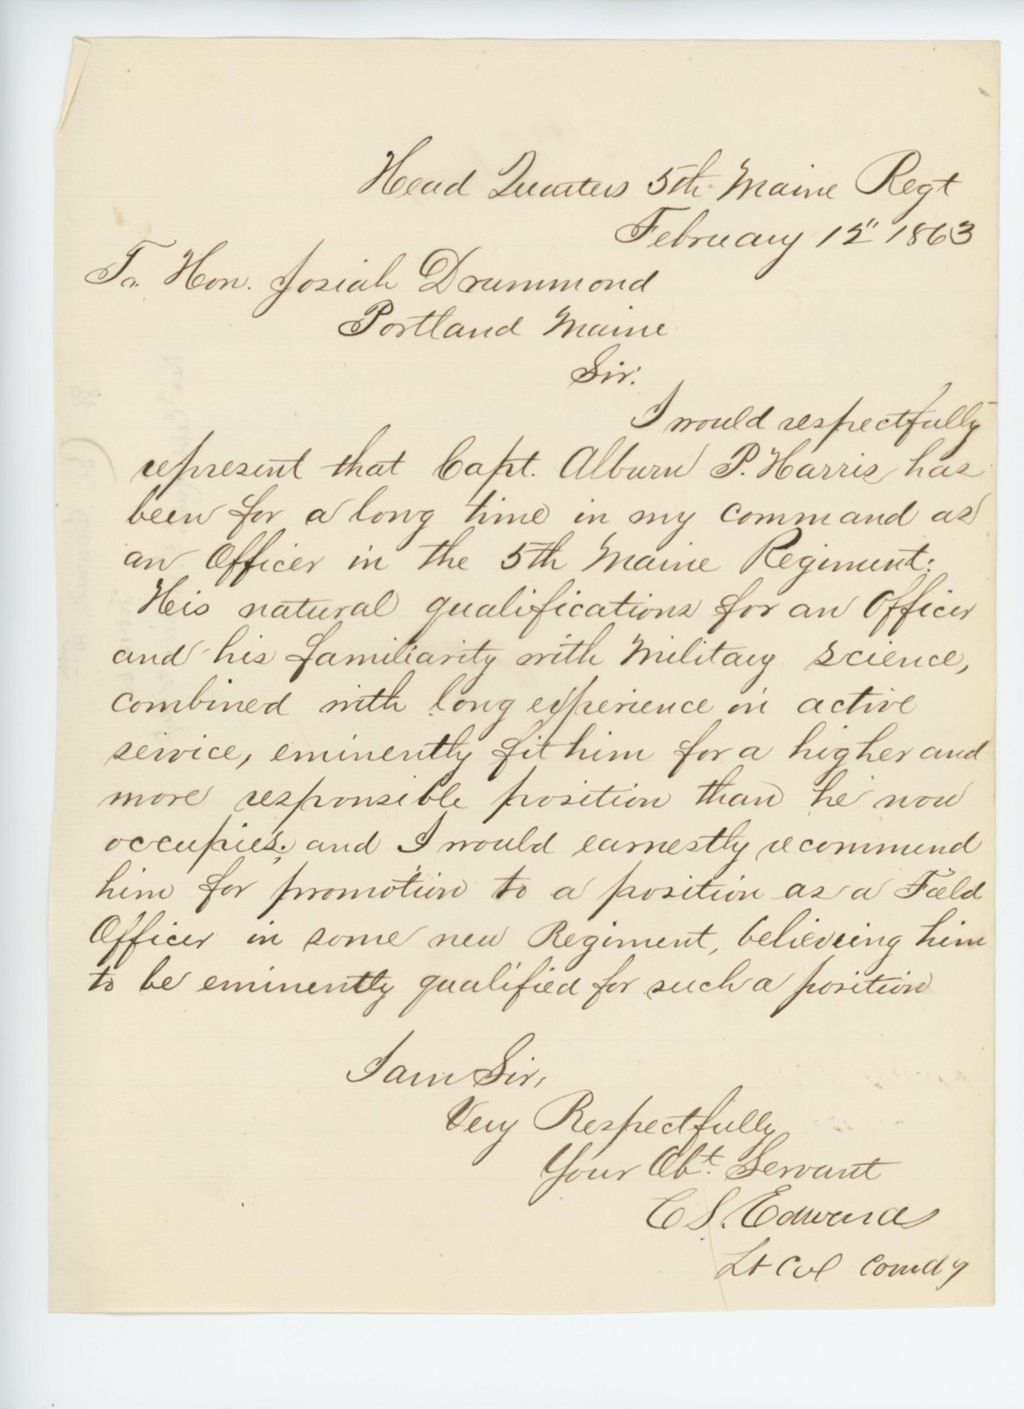 Head Quarters 5th Maine Regt
February 12" 1863
To Hon. Josiah Drummond
Portland Maine
Sir:
I would respectfully
represent that Capt. Alburn P. Harris has
been for a long time in my command as
an Officer in the 5th Maine Regiment:
His natural qualifications for an Officer
and his familiarity with Military science,
combined with long experience in active
service, eminently fit him for a higher and
more responsible position than he now
occupies; and I would earnestly recommend
him for promotion to a position as a Field
Officer in some new Regiment, believing him
to be eminently qualified for such a position
I am Sir,
Very Respectfully
Your Obt. Servant
C S. Edwards
Lt Col Comdg